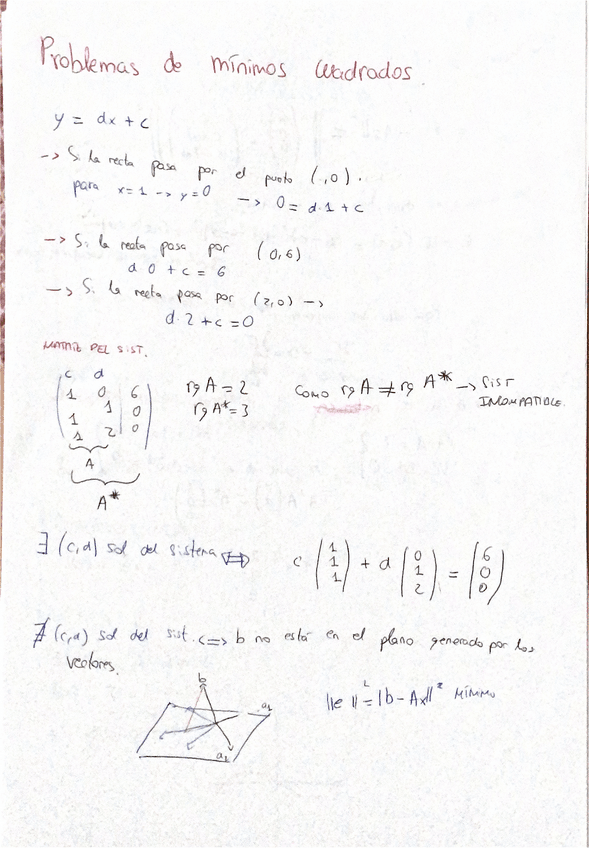 Problemas de mínimos cuadrados.
y = dx + c
-> Si la recta pasa por el punto (1,0).
para x=1 -> y=0 -> 0 = d·1 + c
-> Si la recta pasa por (0,6)
d 0 + c = 6
-> Si la recta pasa por (2,0) ->
d·2 + c = 0
MATRIZ DEL SIST.
c d
1 0 6
1 1 0
1 2 0
A
A*
rg A = 2
rg A* = 3
COMO rg A ≠ rg A* -> SIST
INCOMPATIBLE.
∃ (c,d) sol del sistema <=> c (1 1 1) + d (0 1 2) = (6 0 0)
∄ (c,d) sol del sist. <=> b no está en el plano generado por los
vectores.
b
a1
a2
||e||² = |b - Ax||² MÍNIMO